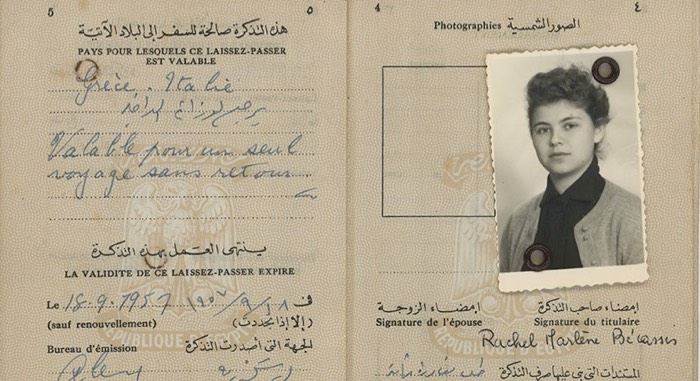 5
٥
هذه التذكرة صالحة للسفر إلى البلاد الآتية
PAYS POUR LESQUELS CE LAISSEZ-PASSER
EST VALABLE
Grèce. Italie
Valable pour un seul
voyage sans retour
ينتهى العمل بهذه التذكرة
LA VALIDITE DE CE LAISSEZ-PASSER EXPIRE
Le 18.9.1957 ١٩٥٧/٩/١٨ فى
(sauf renouvellement) (إلا إذا تجددت)
Bureau d'émission الجهة التى أصدرت التذكرة
4
٤
Photographies الصور الشمسية
إمضاء الزوجة إمضاء صاحب التذكرة
Signature de l'épouse Signature du titulaire
Rachel Marlène
المستندات التى بنى عليها صرف التذكرة
REPUBLIQUE D'EGYPTE